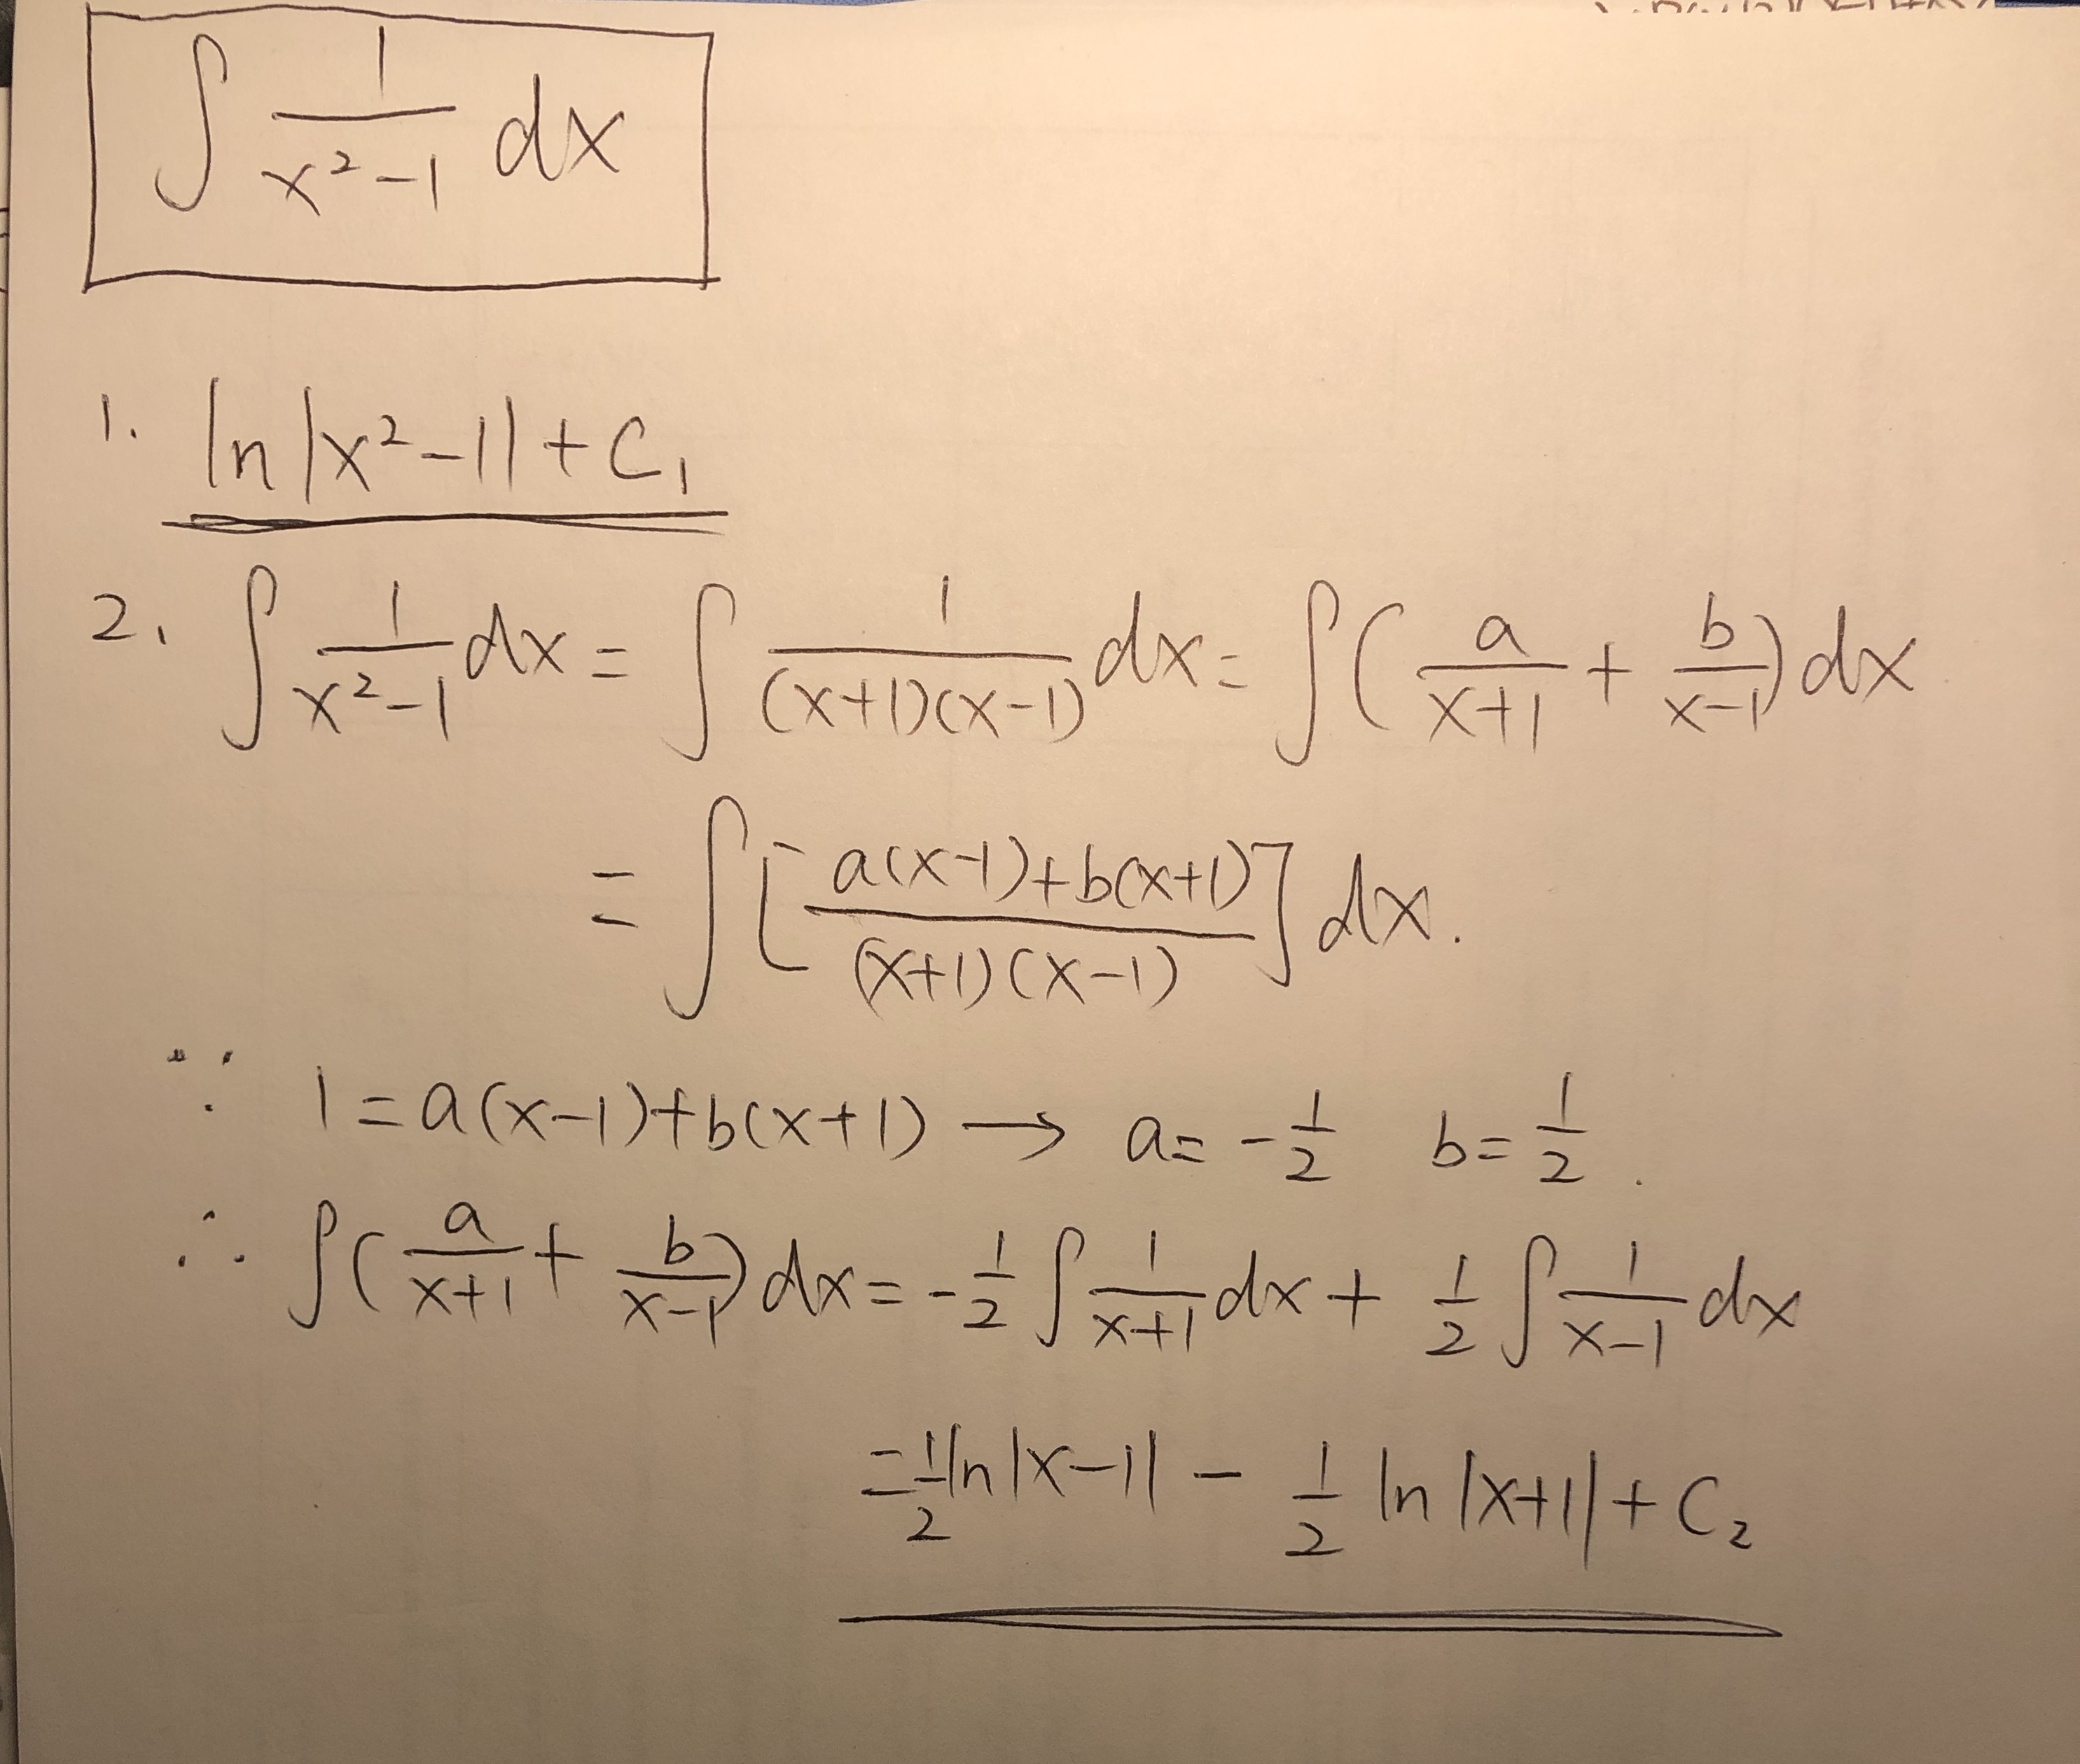 ∫ 1/(x²-1) dx
1. ln|x²-1|+C₁
2. ∫ 1/(x²-1) dx = ∫ 1/((x+1)(x-1)) dx = ∫( a/(x+1) + b/(x-1) ) dx
= ∫[ (a(x-1)+b(x+1))/((x+1)(x-1)) ] dx.
∵ 1=a(x-1)+b(x+1) → a= -1/2 b= 1/2.
∴ ∫( a/(x+1) + b/(x-1) ) dx = -1/2 ∫ 1/(x+1) dx + 1/2 ∫ 1/(x-1) dx
= 1/2 ln|x-1| - 1/2 ln|x+1| + C₂